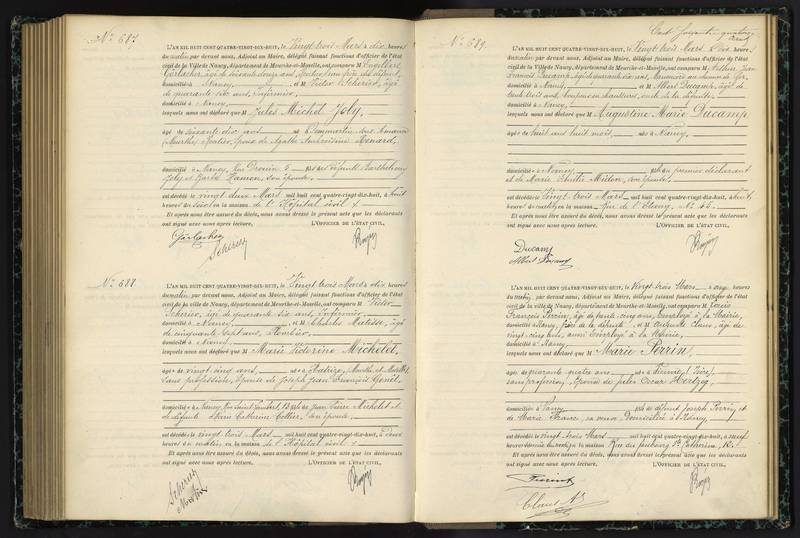 No. 687.
L'AN MIL HUIT CENT QUATRE-VINGT-DIX-HUIT, le Vingt trois Mars à dix heures
du matin, par devant nous, Adjoint au Maire, délégué faisant fonctions d'officier de l'état
civil de la Ville de Nancy, département de Meurthe-et-Moselle, ont comparu M
Gerlacher, âgé de soixante douze ans,
domicilié à Nancy, et M Victor Scherier, âgé
de quarante six ans, infirmier,
domicilié à Nancy,
lesquels nous ont déclaré que M Jules Michel Joly,
âgé de soixante dix ans né à Dommartin
(Meurthe) époux de Agathe Renard,
domicilié à Nancy, Rue Drouin 5 fils de défunts Barthélemy
Joly et Hanon, son épouse,
est décédé le vingt deux Mars mil huit cent quatre-vingt-dix-huit, à huit
heures du soir en la maison de l'Hôpital civil
Et après nous être assuré du décès, nous avons dressé le présent acte que les déclarants
ont signé avec nous après lecture. L'OFFICIER DE L'ÉTAT CIVIL,
Gerlacher
No. 688.
L'AN MIL HUIT CENT QUATRE-VINGT-DIX-HUIT, le Vingt trois Mars à dix heures
du matin, par devant nous, Adjoint au Maire, délégué faisant fonctions d'officier de l'état
civil de la Ville de Nancy, département de Meurthe-et-Moselle, ont comparu M Victor
Scherier, âgé de quarante six ans, Infirmier,
domicilié à Nancy, et M Charles Matisse, âgé
de cinquante sept ans,
domicilié à Nancy,
lesquels nous ont déclaré que M Marie Victorine Michelet,
âgée de vingt cinq ans, née à Meurthe et Moselle
sans profession, épouse de Joseph Jean François Genêt,
domiciliée à Nancy, Rue Saint Lambert, 13 fille de Jean Pierre Michelet et
de défunte Catherine Collier, son épouse,
est décédée le vingt trois Mars mil huit cent quatre-vingt-dix-huit, à deux
heures du matin en la maison de l'Hôpital civil
Et après nous être assuré du décès, nous avons dressé le présent acte que les déclarants
ont signé avec nous après lecture. L'OFFICIER DE L'ÉTAT CIVIL,
Cent soixante quatorze
No. 689.
L'AN MIL HUIT CENT QUATRE-VINGT-DIX-HUIT, le Vingt trois Mars à dix heures
du matin, par devant nous, Adjoint au Maire, délégué faisant fonctions d'officier de l'état
civil de la Ville de Nancy, département de Meurthe-et-Moselle, ont comparu M Arthur Jean
François Ducamp, âgé de quarante six ans, au chemin de fer,
domicilié à Nancy, et M Albert Ducamp, âgé de
vingt trois ans, coupeur en chaussures, oncle de la défunte,
domicilié à Nancy,
lesquels nous ont déclaré que M Augustine Marie Ducamp
âgée de huit ans huit mois, née à Nancy,
domiciliée à Nancy fille du premier déclarant
et de Marie son épouse,
est décédée le Vingt trois Mars mil huit cent quatre-vingt-dix-huit, à huit
heures du matin en la maison Rue de l'Etang, No 45
Et après nous être assuré du décès, nous avons dressé le présent acte que les déclarants
ont signé avec nous après lecture. L'OFFICIER DE L'ÉTAT CIVIL,
Ducamp
L'AN MIL HUIT CENT QUATRE-VINGT-DIX-HUIT, le Vingt trois Mars à onze heures
du matin, par devant nous, Adjoint au Maire, délégué faisant fonctions d'officier de l'état
civil de la Ville de Nancy, département de Meurthe-et-Moselle, ont comparu M Louis
François Perrin, âgé de trente cinq ans, employé à la Mairie,
domicilié à Nancy, frère de la défunte et M Auguste Claus, âgé de
vingt cinq ans, aussi employé à la Mairie,
domicilié à Nancy
lesquels nous ont déclaré que M Marie Perrin,
âgée de quarante quatre ans née à Vienne (Isère),
sans profession, épouse de Jules Oscar Hertzog,
domiciliée à Nancy fille de défunt Joseph Perrin et
de Marie sa veuve, domiciliée à Nancy,
est décédée le Vingt trois Mars mil huit cent quatre-vingt-dix-huit, à neuf
heures en la maison Rue du faubourg Ste Catherine,
Et après nous être assuré du décès, nous avons dressé le présent acte que les déclarants
ont signé avec nous après lecture. L'OFFICIER DE L'ÉTAT CIVIL,
Perrin
Claus